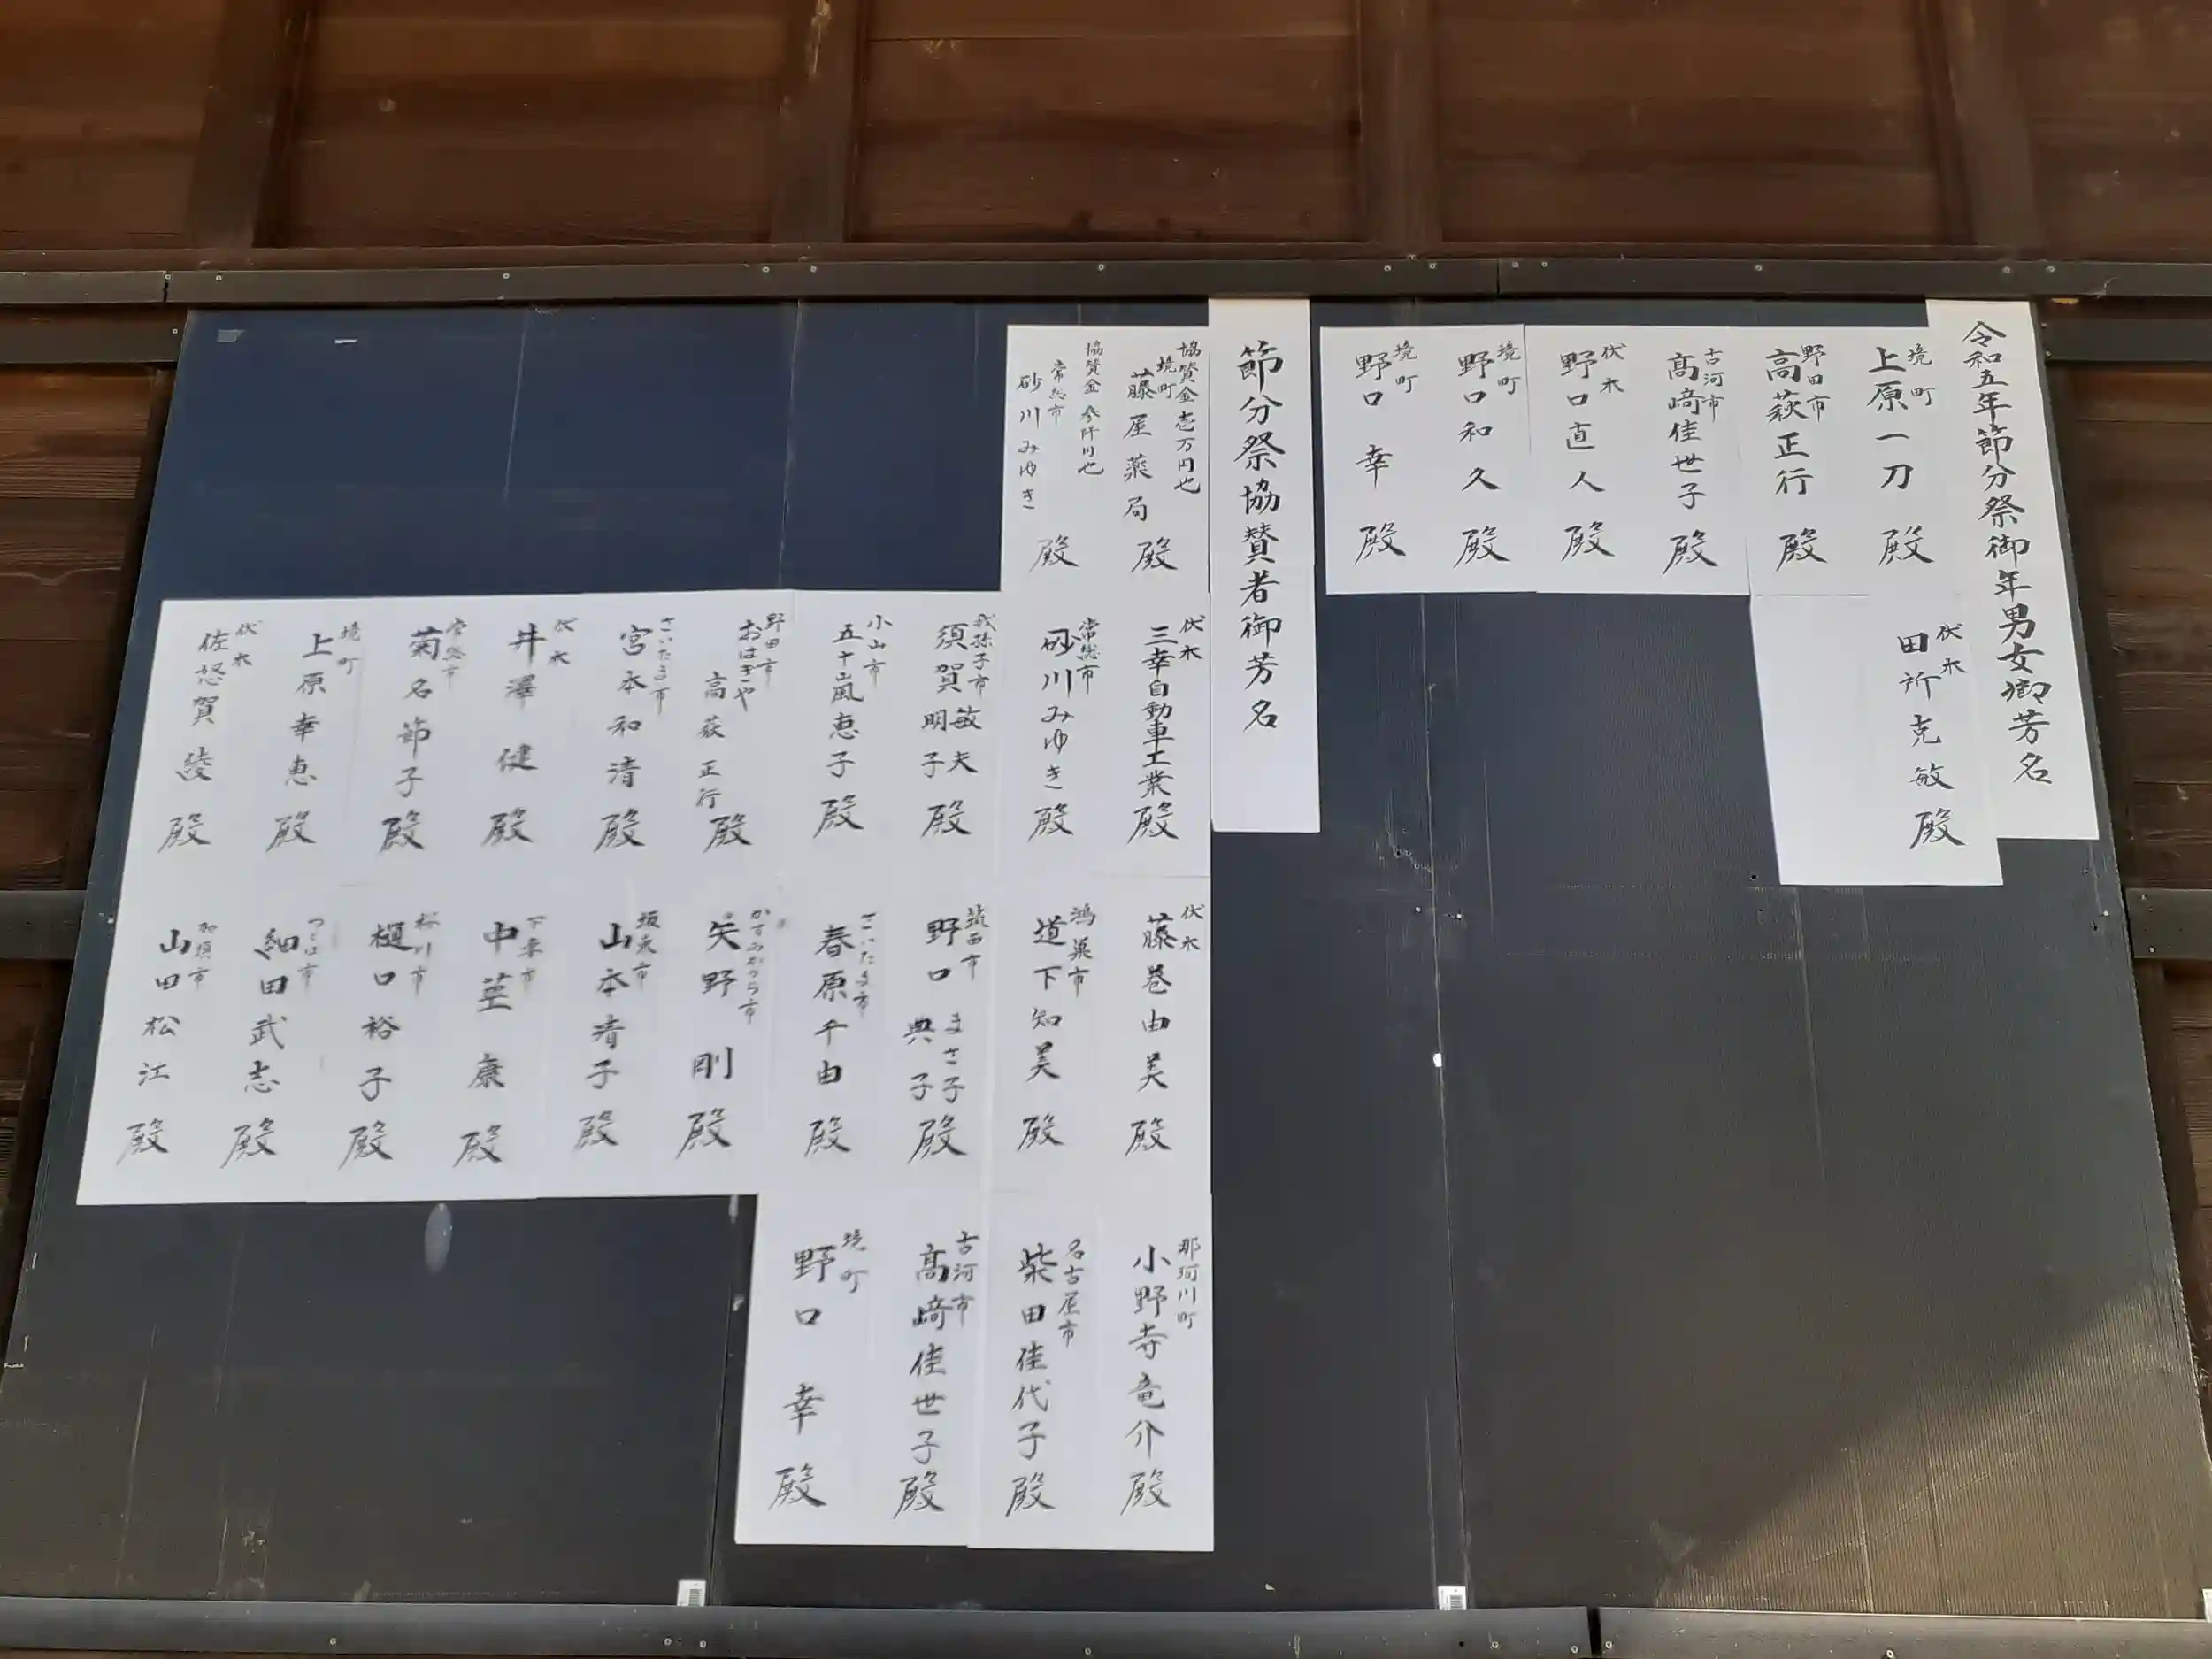 令和五年節分祭御年男女御芳名
境町
上原一刀 殿
野田市
高萩正行 殿
古河市
髙﨑佳世子 殿
伏木
野口直人 殿
境町
野口和久 殿
境町
野口 幸 殿
伏木
田所克敏 殿
節分祭協賛者御芳名
協賛金 壱万円也
境町
藤屋薬局 殿
協賛金 参阡円也
常総市
砂川みゆき 殿
伏木
三幸自動車工業 殿
常総市
砂川みゆき 殿
我孫子市
須賀敏夫
明子 殿
小山市
五十嵐恵子 殿
野田市
おはぎや
高萩正行 殿
さいたま市
宮本和清 殿
伏木
井澤 健 殿
常総市
菊名節子 殿
境町
上原幸恵 殿
伏木
佐怒賀 綾 殿
伏木
藤巻由美 殿
鴻巣市
道下知美 殿
筑西市
野口 まさ子
典子 殿
さいたま市
春原千由 殿
かすみがうら市
矢野 剛 殿
坂東市
山本清子 殿
下妻市
中茎 康 殿
桜川市
樋口裕子 殿
つくば市
細田武志 殿
加須市
山田松江 殿
那珂川町
小野寺竜介 殿
名古屋市
柴田佳代子 殿
古河市
髙﨑佳世子 殿
境町
野口 幸 殿